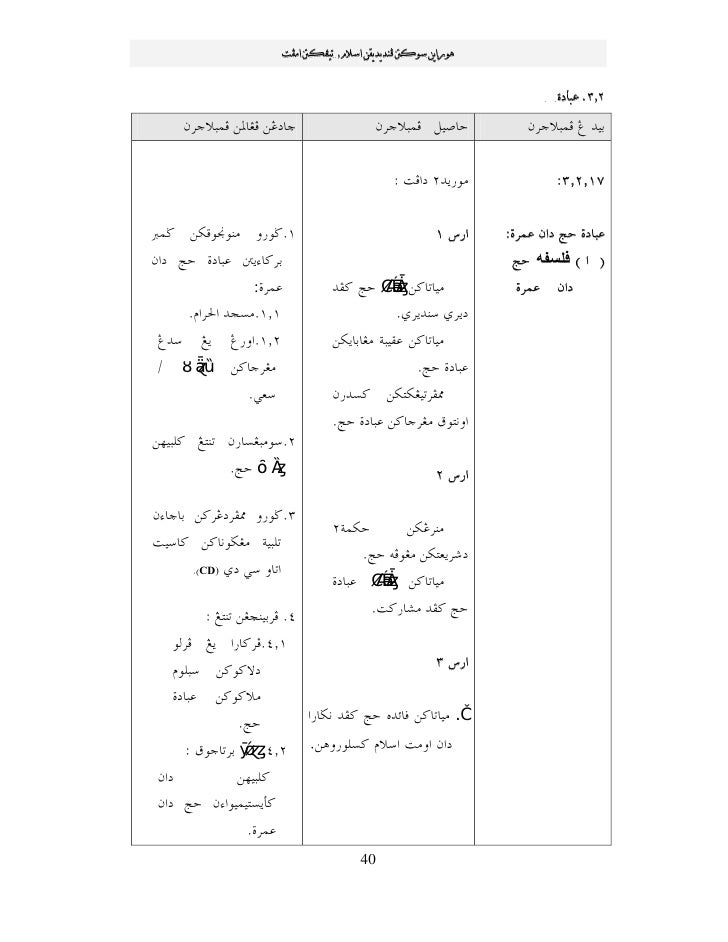 هوراين سوكتن ڤنديديقن اسلام , تيڠكتن امڤت
٣,٢. عبادة
بيد ڠ ڤمبلاجرن
حاصيل ڤمبلاجرن
جادڠن ڤڠالمن ڤمبلاجرن
٣,٢,١٧:
عبادة حج دان عمرة:
( ا ) فلسفه حج
دان عمرة
موريد٢ داڤت :
ارس ١
مياتاكن حج كڤد
ديري سنديري.
مياتاكن عقيبة مڠابايكن
عبادة حج.
ممڤرتيڠكتكن كسدرن
اونتوق مڠرجاكن عبادة حج.
ارس ٢
منرڠكن حكمة٢
دشريعتكن مڠوڤه حج.
مياتاكن عبادة
حج كڤد مشاركت.
ارس ٣
Č. مياتاكن فائده حج كڤد نݢارا
دان اومت اسلام كسلوروهن.
١.ݢورو منونجوقكن ݢمبر
بركاءيتن عبادة حج دان
عمرة:
١,١.مسجد الحرام.
١,٢.اورڠ يڠ سدڠ
مڠرجاكن /
سعي.
٢.سومبڠسارن تنتڠ كلبيهن
حج.
٣.ݢورو ممڤردڠركن باجاءن
تلبية مڠݢوناكن كاسيت
اتاو سي دي (CD).
٤. ڤربينچڠن تنتڠ :
٤,١.ڤركارا يڠ ڤرلو
دلاكوكن سبلوم
ملاكوكن عبادة
حج.
٤,٢ برتاجوق :
كلبيهن دان
كأيستيميواءن حج دان
عمرة.
40